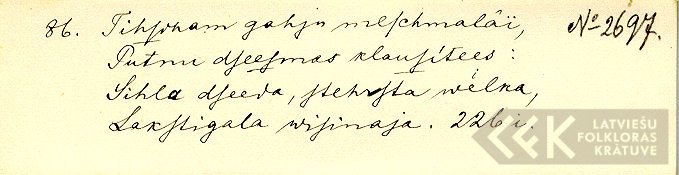 86. Tihscham gahju meschmalâi, № 2697.
Putnu dseesmas klausitees:
Sihle dseeda, stehrsta wèlka,
Lakstigala wisinaja. 226 i.
LATVIEŠU
FOLKLORAS
KRĀTUVE